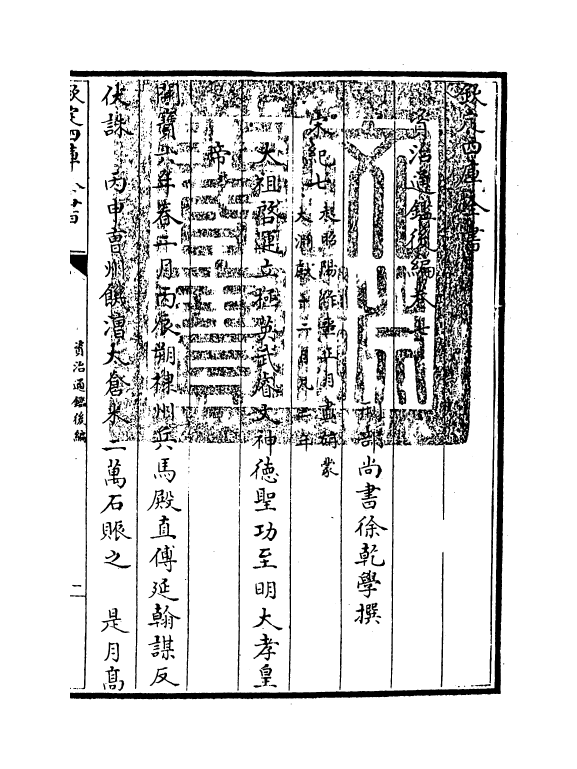 欽定四庫全書
資治通鑑後編卷七
部尚書徐乾學撰
宋紀七 起昭陽作噩正月盡旃蒙
大淵獻十二月凡三年
太祖啓運立極英武睿文神德聖功至明大孝皇
帝
開寶六年春二月丙辰朔棣州兵馬殿直傅延翰謀反
伏誅 丙申曹州饑漕太倉米二萬石賑之 是月高
欽定四庫
資治通鑑後編